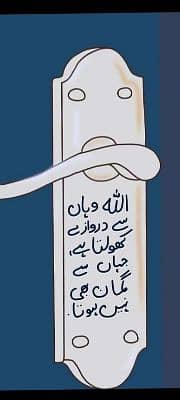 اللہ وہاں
سے دروازے
کھولتا ہے،
جہاں سے
گمان بھی
نہیں ہوتا۔